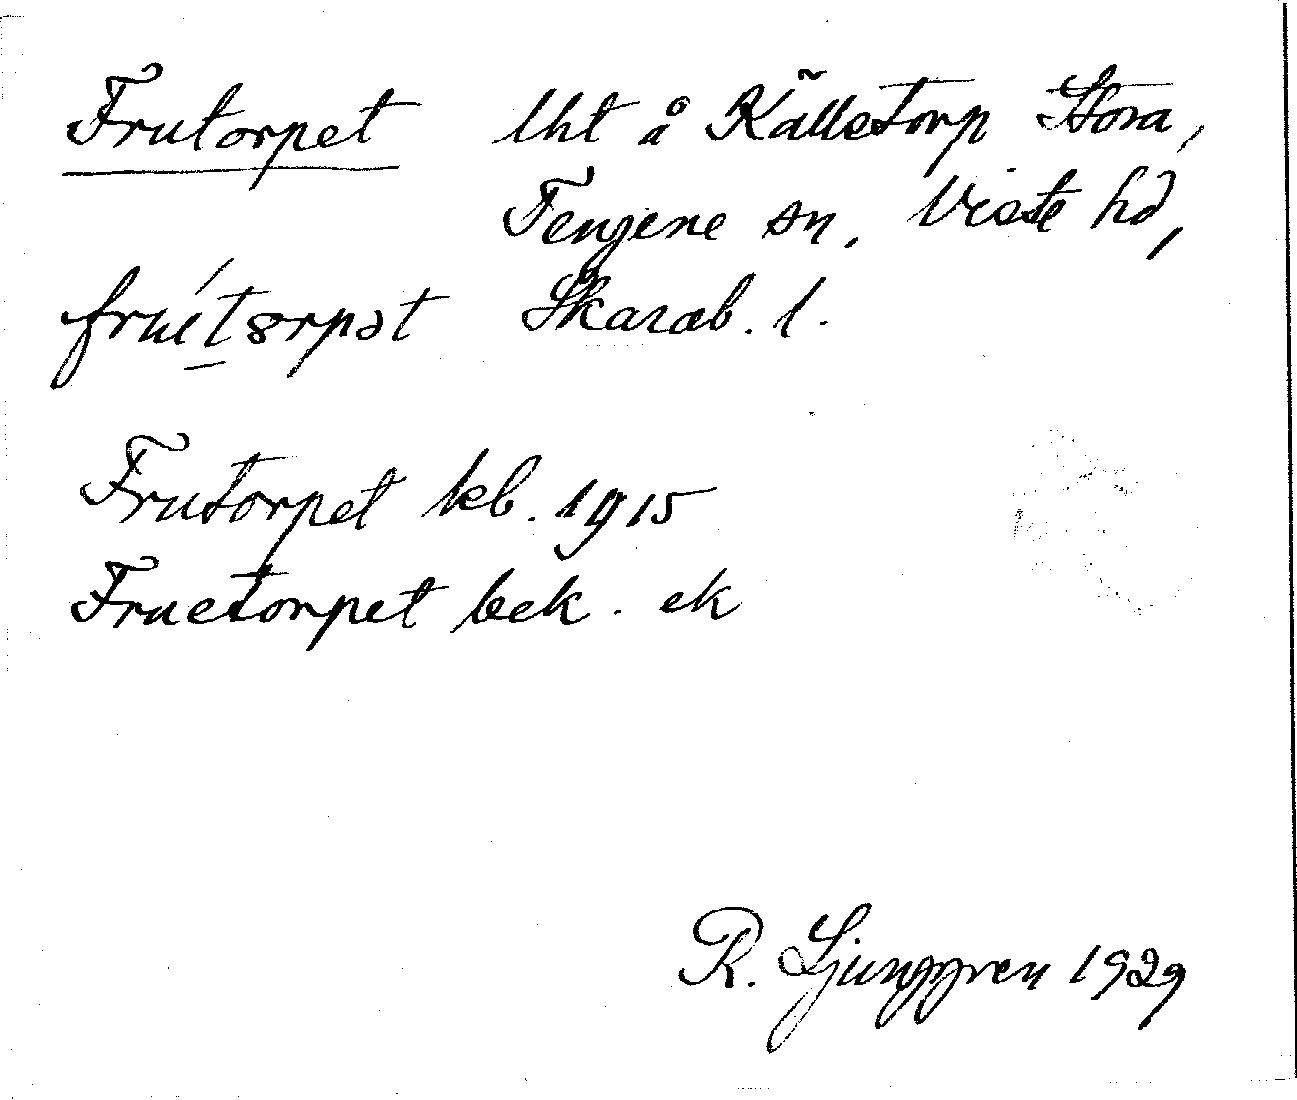 Frutorpet lht å Källetorp Stora,
Fengene sn, Viste hd,
Skarab. l.
Frutorpet kb. 1915
Fruetorpet bek. ek
R. Ljunggren 1929